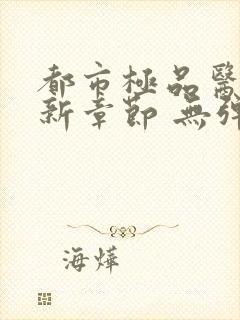 都市極品醫
新章節 無彈
海燁